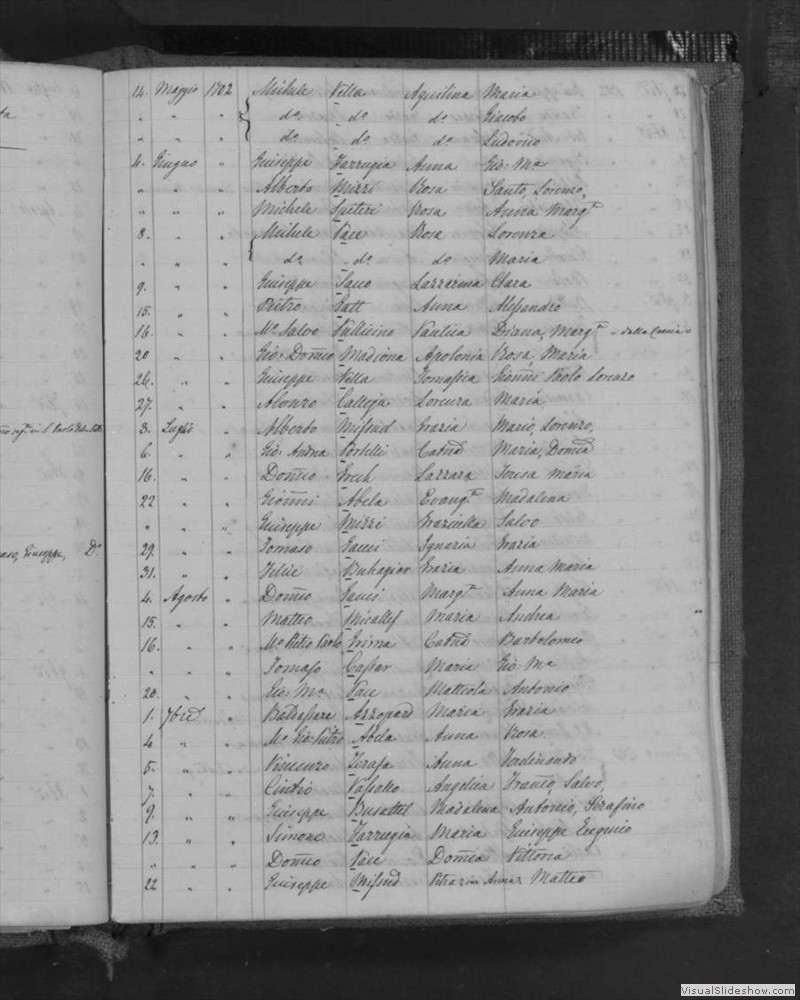 14. Maggio 1702 Michele Vella Aquilina Maria
" " " do do do Giacobo
" " " do do do Ludovico
4. Giugno " Giuseppe Farrugia Anna Gio: Ma
" " " Alberto Mizzi Rosa Santo, Lorenzo,
" " " Michele Spiteri Rosa Anna Margta
8. " " Michele Pace Rosa Lorenza
" " " do do do Maria
9. " " Giuseppe Sacco Lazzarina Clara
15. " " Pietro Gatt Anna Alessandro
16. " " Mo Salvo Paulica Diana, Margta
20 " " Gio: Domco Madiona Apolonia Rosa Maria
26. " " Giuseppe Vella Tomasica Gionni Paolo Lorenzo
27. " " Alonzo Calleja Lorenza Maria
3. Luglio " Alberto Mifsud Grazia Mario, Lorenzo,
6. " " Gio: Andrea Portelli Catna Maria, Domca
16 " " Domco Grech Lazzara Teresa Maria
22 " " Gionni Abela Evangta Madalena
" " " Giuseppe Mizzi Graziulla Salvo
29. " " Tomaso Ignazia Grazia
31. " " Felice Buhagiar Grazia Anna Maria
4. Agosto " Domco Margta Anna Maria
15. " " Matteo Micallef Maria Andrea
16. " " Mo Pietro Paolo Grima Catna Bartolomeo
" " " Tomaso Caspar Maria Gio: Ma
20. " " Gio: Ma Pace Matteola Antonio
1. 7bre " Baldassare Azzopard Maria Grazia
4 " " Mo Gio: Pietro Abela Anna Rosa
5. " " Vincenzo Anna Ferdinando
7. " " Vassallo Angelica Franco, Salvo,
9. " " Giuseppe Busuttil Madalena Antonio, Serafino
13. " " Simone Farrugia Maria Giuseppe Eugenio
" " " Domco Pace Domca Vittoria
22 " " Giuseppe Mifsud Anna Matteo
VisualSlideshow.com